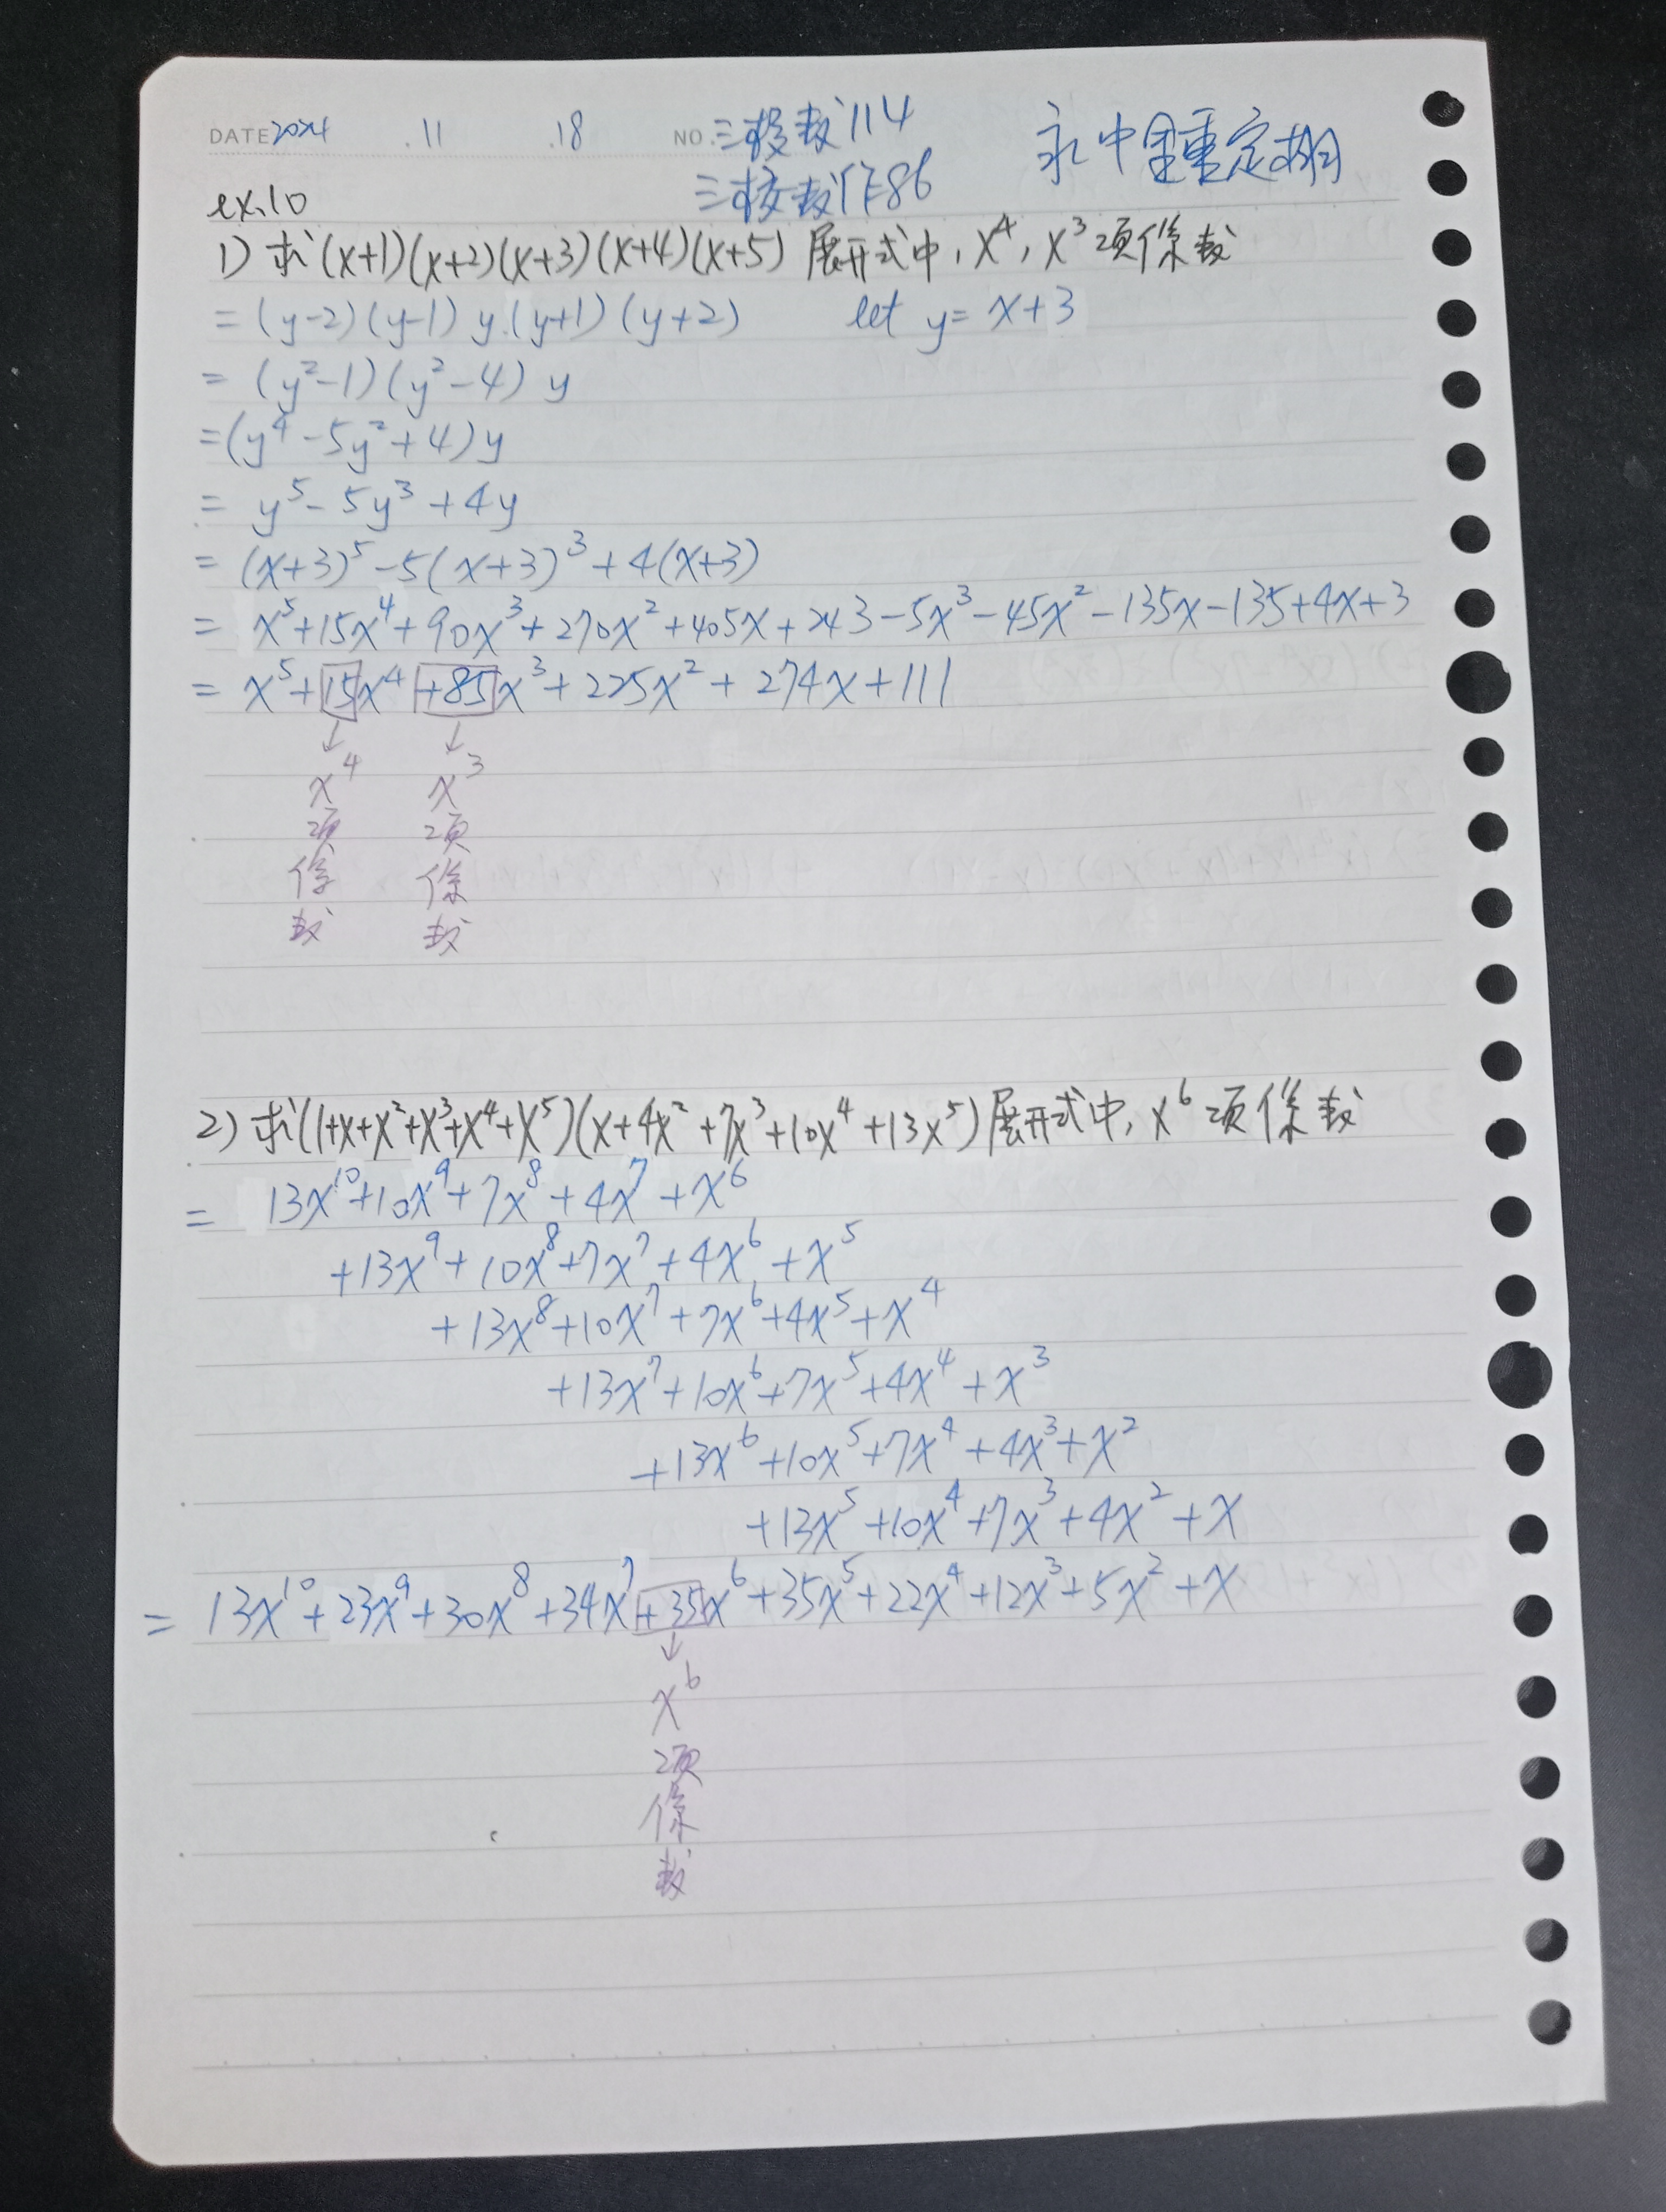 DATE 2024 .11 .18 NO. 三段數114 永中鍾定栩
三段數作86
ex.10
1) 求(x+1)(x+2)(x+3)(x+4)(x+5) 展開式中, x⁴, x³項係數
= (y-2)(y-1) y (y+1)(y+2) let y = x+3
= (y²-1)(y²-4) y
= (y⁴-5y²+4)y
= y⁵-5y³+4y
= (x+3)⁵-5(x+3)³+4(x+3)
= x⁵+15x⁴+90x³+270x²+405x+243-5x³-45x²-135x-135+4x+3
= x⁵+15x⁴+85x³+225x²+274x+111
↓ ↓
x⁴項係數
x³項係數
2) 求(1+x+x²+x³+x⁴+x⁵)(x+4x²+7x³+10x⁴+13x⁵)展開式中, x⁶項係數
= 13x¹⁰+10x⁹+7x⁸+4x⁷+x⁶
+13x⁹+10x⁸+7x⁷+4x⁶+x⁵
+13x⁸+10x⁷+7x⁶+4x⁵+x⁴
+13x⁷+10x⁶+7x⁵+4x⁴+x³
+13x⁶+10x⁵+7x⁴+4x³+x²
+13x⁵+10x⁴+7x³+4x²+x
= 13x¹⁰+23x⁹+30x⁸+34x⁷+35x⁶+35x⁵+22x⁴+12x³+5x²+x
↓
x⁶項係數